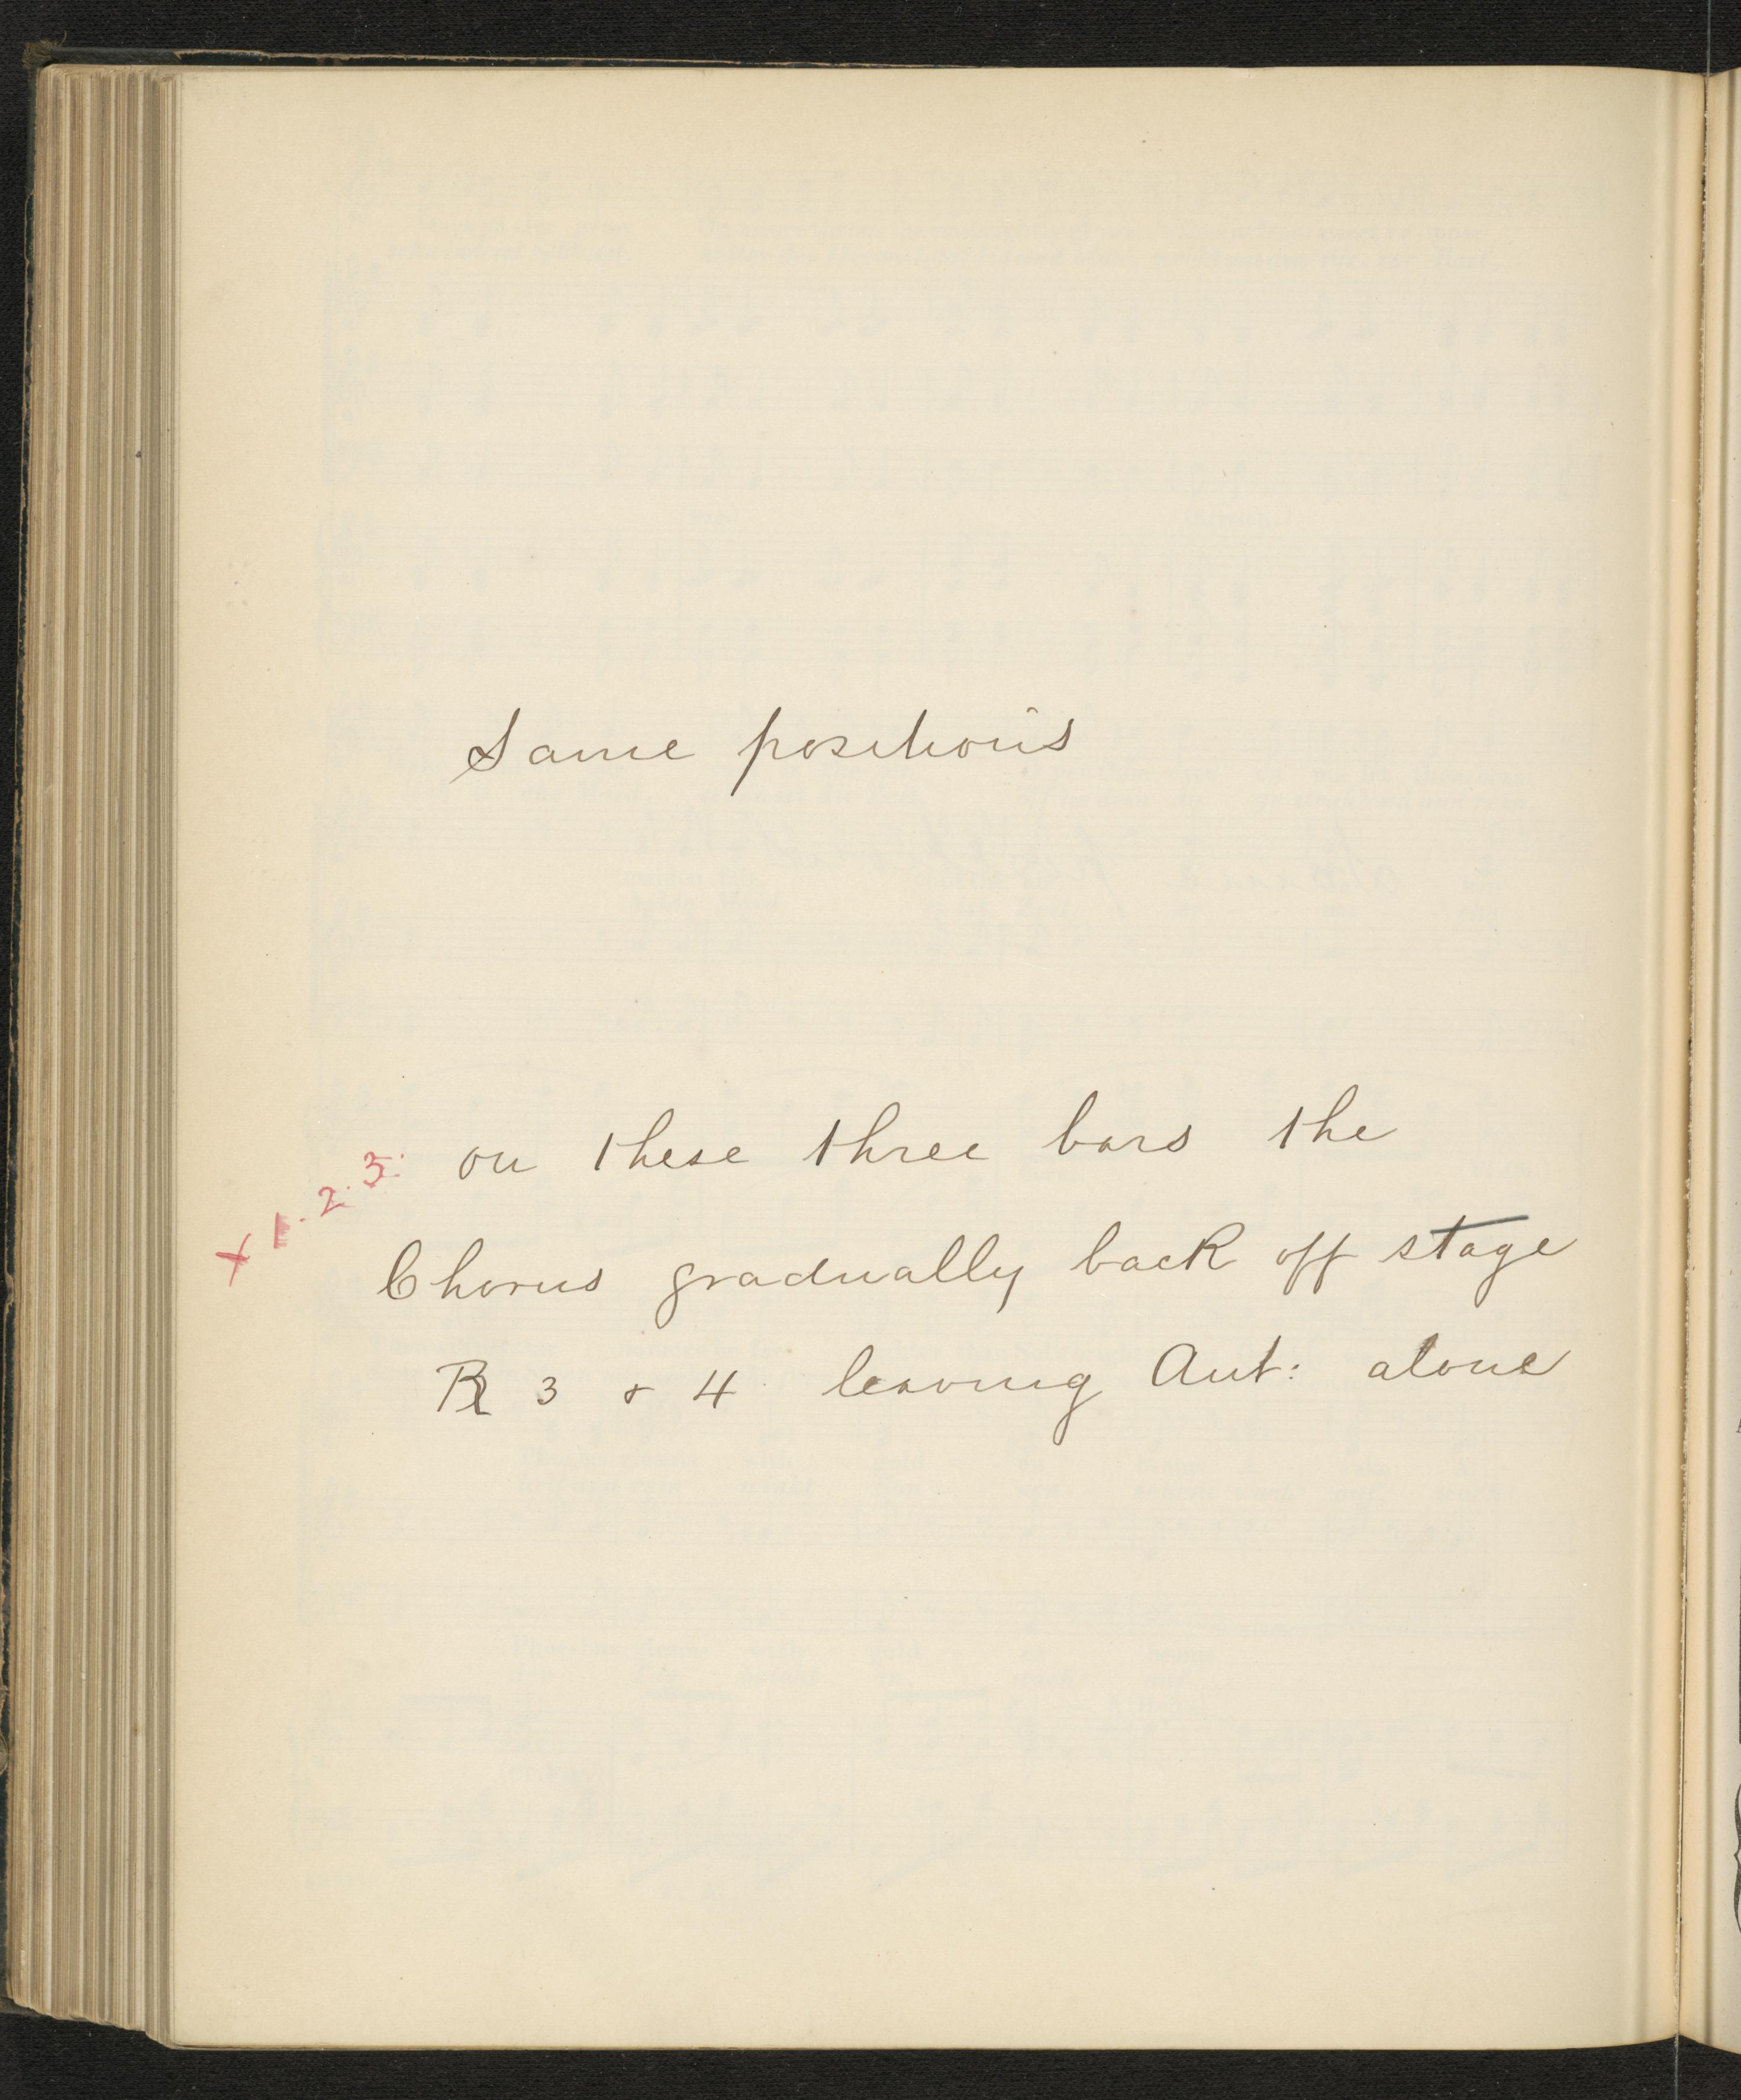 Same positions
X 1. 2. 3. on these three bars the
Chorus gradually back off stage
R 3 & 4 leaving Ant: alone